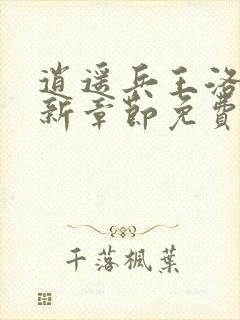 逍遥兵王洛
新章節免費
千落楓葉